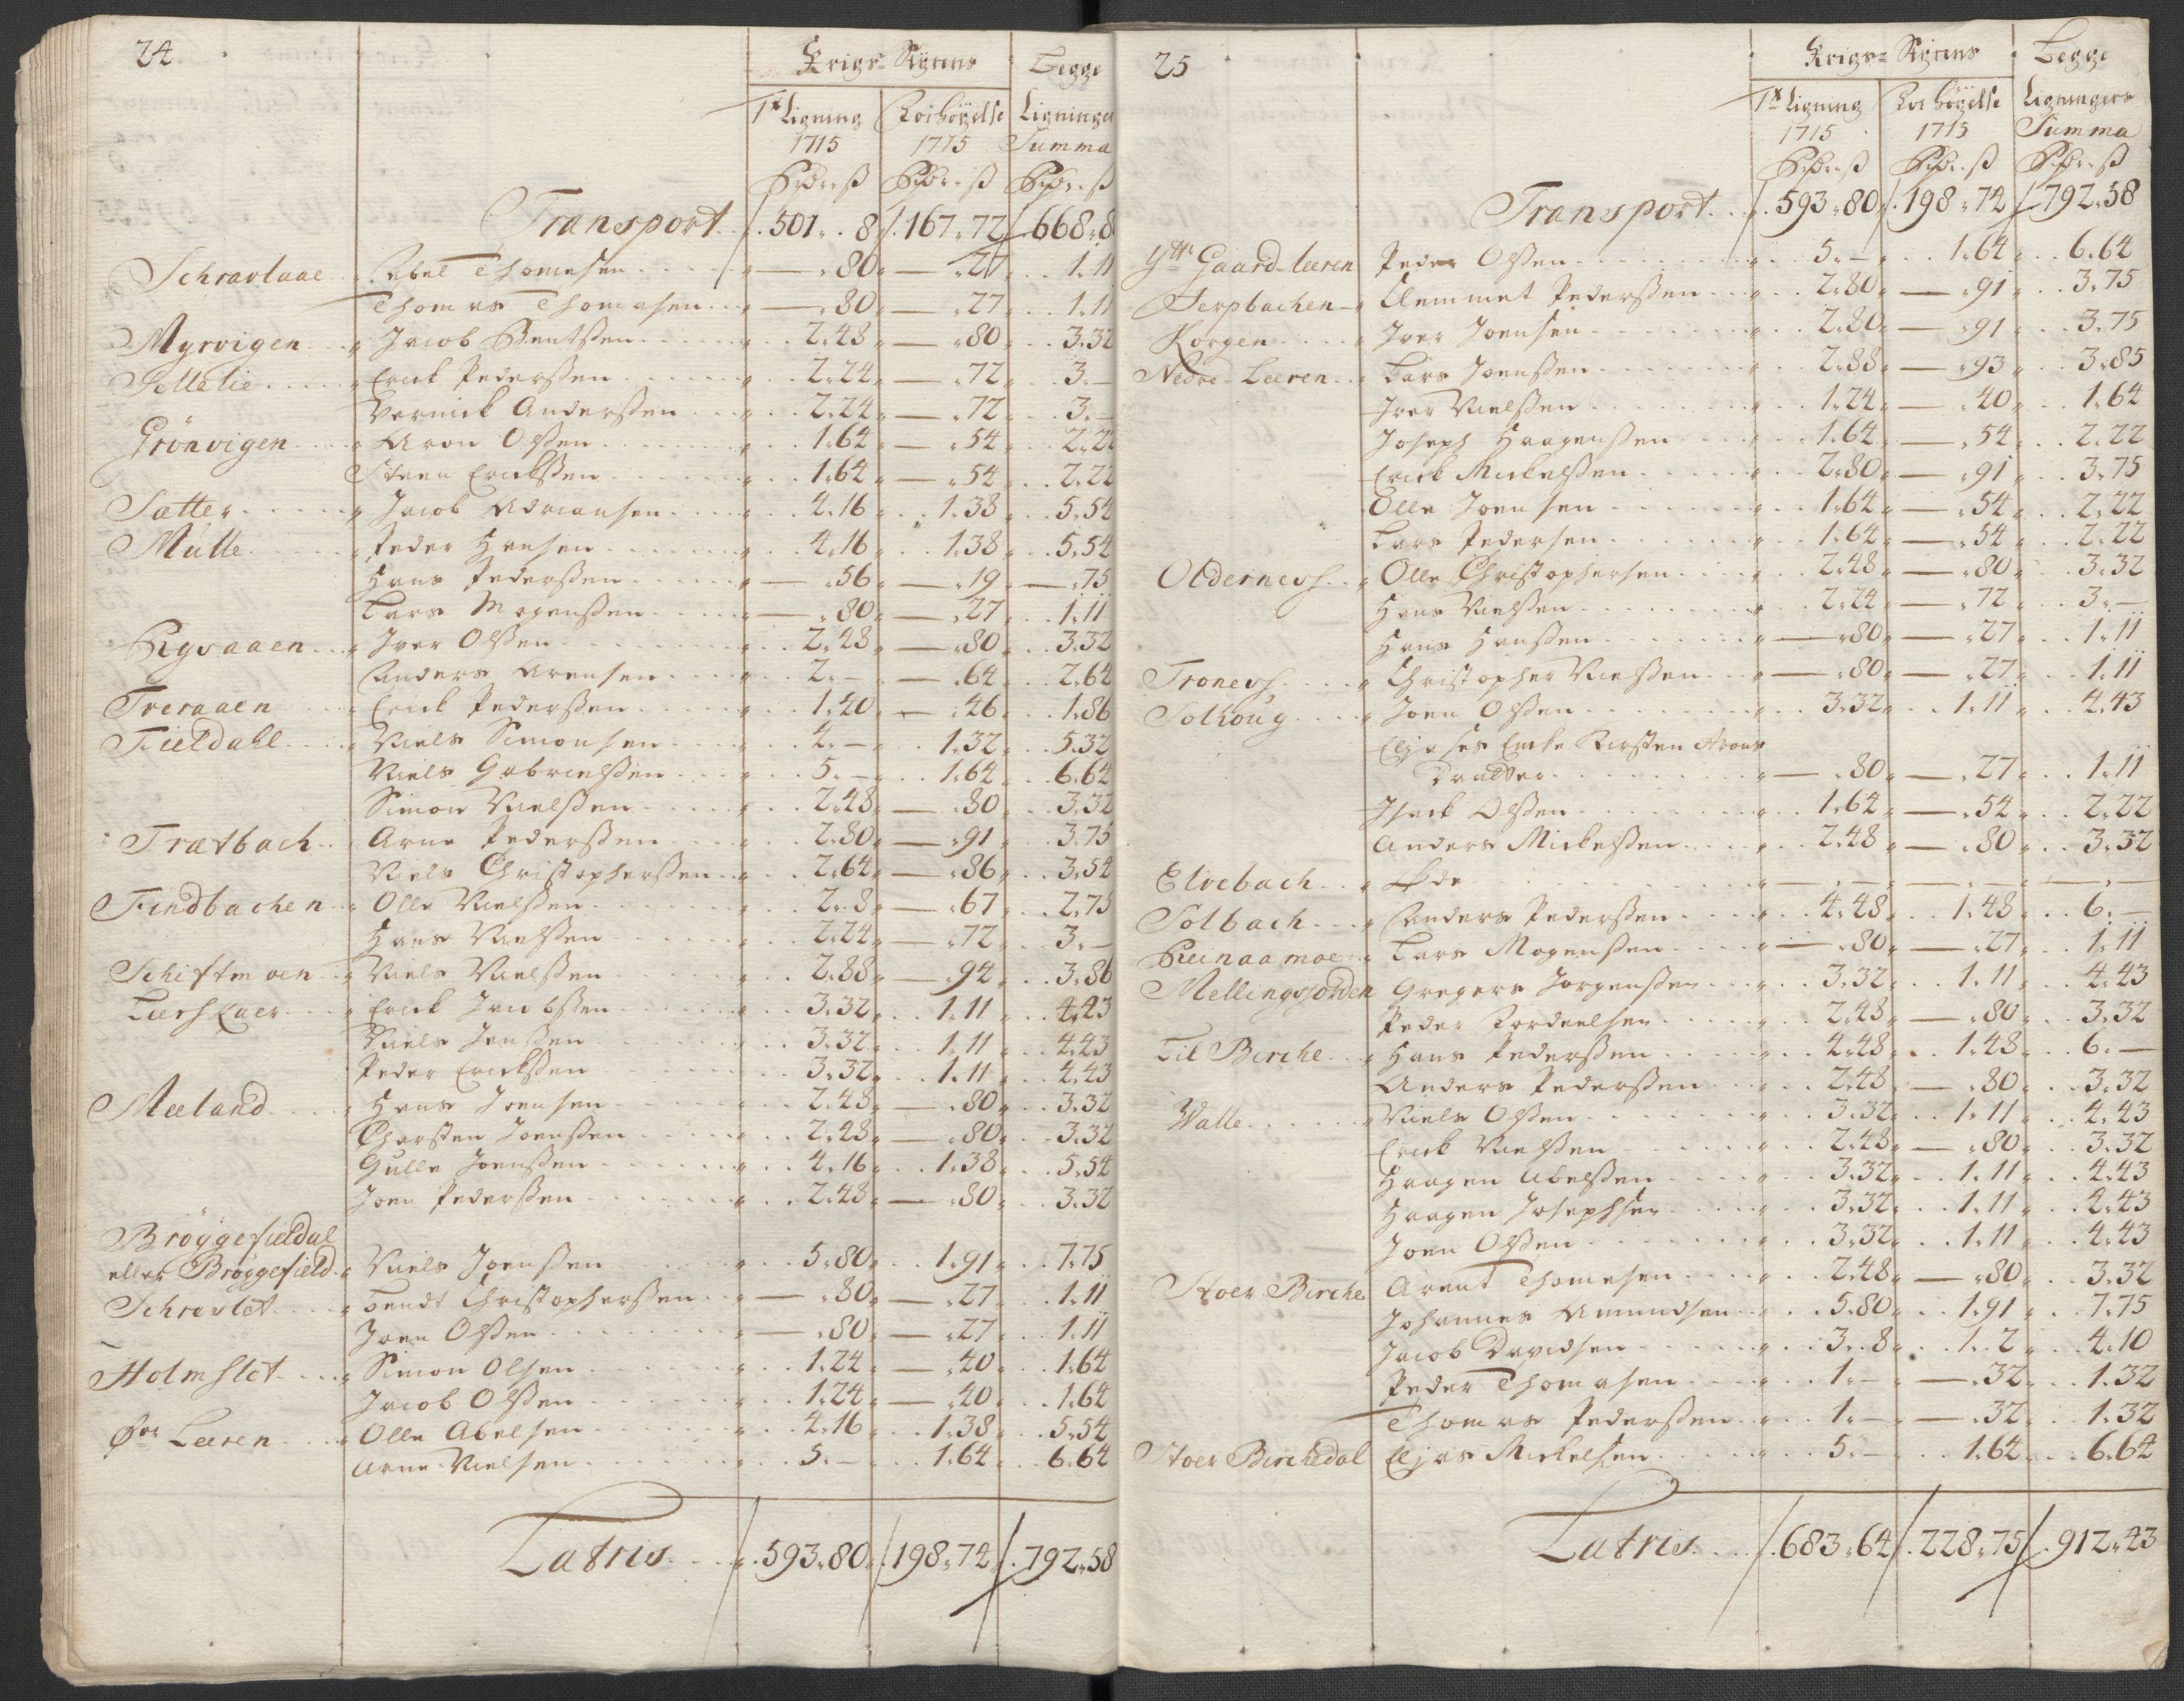 24
Krigs-Styrens Begge
1te Ligning Forhögelse Ligninger
1715 1715 Summa
Rdr. ß Rdr. ß Rdr. ß
Transport 501. 8 167.72 668.8
Schravlaae Abel Thomesen — .80 — .27 1.11
Thomas Thomasen — .80 — .27 1.11
Myrvigen Jacob Bentssen 2.48 — .80 3.32
Sellelie Erick Pederssen 2.24 — .72 3.—
Vernick Anderssen 2.24 — .72 3.—
Grönvigen Aron Olssen 1.64 — .54 2.22
Steen Erickssen 1.64 — .54 2.22
Sætter Jacob Adriansen 4.16 1.38 5.54
Mülle Peder Hansen 4.16 1.38 5.54
Hans Pederssen — .56 — .19 — .75
Lars Mogenssen — .80 — .27 1.11
Rysaaen Iver Olssen 2.48 — .80 3.32
Anders Arensen 2.— — .64 2.64
Tveraaen Erick Pederssen 1.40 — .46 1.86
Fieldahl Niels Simonsen 4.— 1.32 5.32
Niels Gabrielssen 5.— 1.64 6.64
Simon Nielssen 2.48 — .80 3.32
Trætbach Arne Pederssen 2.80 — .91 3.75
Niels Christopherssen 2.64 — .86 3.54
Findbachen Olle Nielssen 2.8 — .67 2.75
Hans Nielssen 2.24 — .72 3.—
Schiftmoen Niels Nielssen 2.88 — .94 3.86
Luerskaer Erick Jacobssen 3.32 1.11 4.43
Niels Jenssen 3.32 1.11 4.43
Peder Erickssen 3.32 1.11 4.43
Meeland Hans Joensen 2.48 — .80 3.32
Thorsten Joenssen 2.48 — .80 3.32
Gulle Joenssen 4.16 1.38 5.54
Joen Pederssen 2.48 — .80 3.32
Bröggefieldal
eller Bröggefield Niels Joenssen 5.80 1.91 7.75
Schreslet Bendt Christopherssen — .80 — .27 1.11
Joen Olssen — .80 — .27 1.11
Holmslet Simon Olsen 1.24 — .40 1.64
Jacob Olssen 1.24 — .40 1.64
Øvr Leeren Olle Abelsen 4.16 1.38 5.54
Arne Nielsen 5.— 1.64 6.64
Latris 593.80 198.74 792.58
25
Krigs-Styrens Begge
1te Ligning Forhögelse Ligningers
1715 1715 Summa
Rdr. ß Rdr. ß Rdr. ß
Transport 593.80 198.74 792.58
Yttr Gaard-leeren Peder Olssen 5.— 1.64 6.64
Serpbachen Clemmet Pederssen 2.80 — .91 3.75
Korgen Iver Joensen 2.80 — .91 3.75
Nedre Leeren Lars Joenssen 2.88 — .93 3.85
Iver Nielssen 1.24 — .40 1.64
Joseph Haagenssen 1.64 — .54 2.22
Erick Mickelssen 2.80 — .91 3.75
Olle Joensen 1.64 — .54 2.22
Lars Pedersen 1.64 — .54 2.22
Olderness Olle Christophersen 2.48 — .80 3.32
Hans Nielssen 2.24 — .72 3.—
Hans Hanssen — .80 — .27 1.11
Troness Christopher Nielssen — .80 — .27 1.11
Solhoug Joen Olssen 3.32 1.11 4.43
Eljases Encke Kirsten Arons
Daatter — .80 — .27 1.11
Isack Olssen 1.64 — .54 2.22
Anders Mickelssen 2.48 — .80 3.32
Elvebach Øde — — —
Solbach Anders Pederssen 4.48 1.48 6.—
Reinaamoe Lars Mogenssen — .80 — .27 1.11
Mellingsjorden Gregers Jorgenssen 3.32 1.11 4.43
Peder Tordeelsen 2.48 — .80 3.32
Lil Birche Hans Pederssen 4.48 1.48 6.—
Anders Pederssen 2.48 — .80 3.32
Walle Niels Olssen 3.32 1.11 4.43
Erick Nielssen 2.48 — .80 3.32
Haagen Abelssen 3.32 1.11 4.43
Haagen Josephsen 3.32 1.11 4.43
Joen Olssen 3.32 1.11 4.43
Stoer Birche Arent Thomesen 2.48 — .80 3.32
Johannes Amundsen 5.80 1.91 7.75
Jacob Davidsen 3.8 1.2 4.10
Peder Thomasen 1.— — .32 1.32
Thomas Pederssen 1.— — .32 1.32
Stoer Birchedal Eljas Mickelsen 5.— 1.64 6.64
Latris 683.64 228.75 912.43